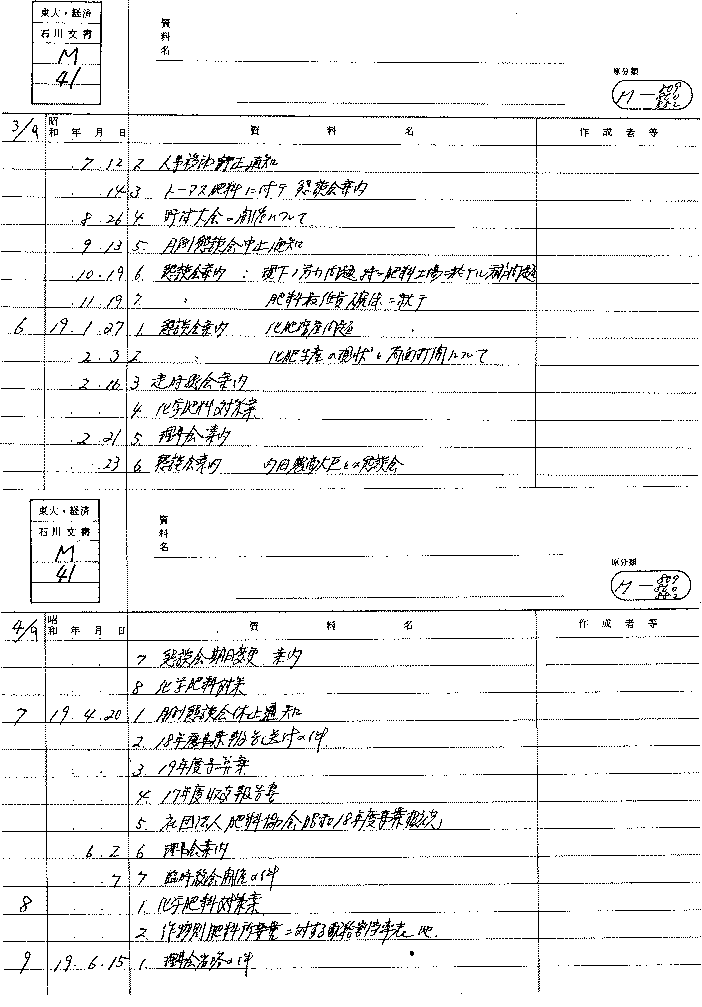 東大・経済
石川文書
M
41
資料名
原分類
M-809
810
842
3/9 昭和 年 月 日 資料名 作成者等
7 12 2 人事移動訂正通知
14 3 トーマス肥料ニ付テ 懇談会案内
8 26 4 野村大会の開催について
9 13 5 月例懇談会中止通知
10 19 6 懇談会案内 : 現下ノ労力問題 特ニ肥料工場ニ於ケル
11 19 7 〃 肥料最低量確保ニ就テ
6 19 1 27 1 懇談会案内 化肥増産問題
2 3 2 〃 化肥生産の現状と局面打開について
2 16 3 定時総会案内
4 化学肥料対策案
2 21 5 理事会案内
23 6 懇談会案内 内田農商大臣との懇談会
東大・経済
石川文書
M
41
資料名
原分類
M-809
810
842
4/9 昭和 年 月 日 資料名 作成者等
7 懇談会期日変更 案内
8 化学肥料対策
7 19 4 20 1 月例懇談会休止通知
2 18年度事業報告送付の件
3 19年度予算案
4 17年度収支報告書
5 社団法人肥料協会昭和18年度事業概況」
6 2 6 理事会案内
7 7 臨時総会開催の件
8 1 化学肥料対策案
2 作物別肥料所要量ニ対する配給割当率表 他
9 19 6 15 1 理事会省略の件